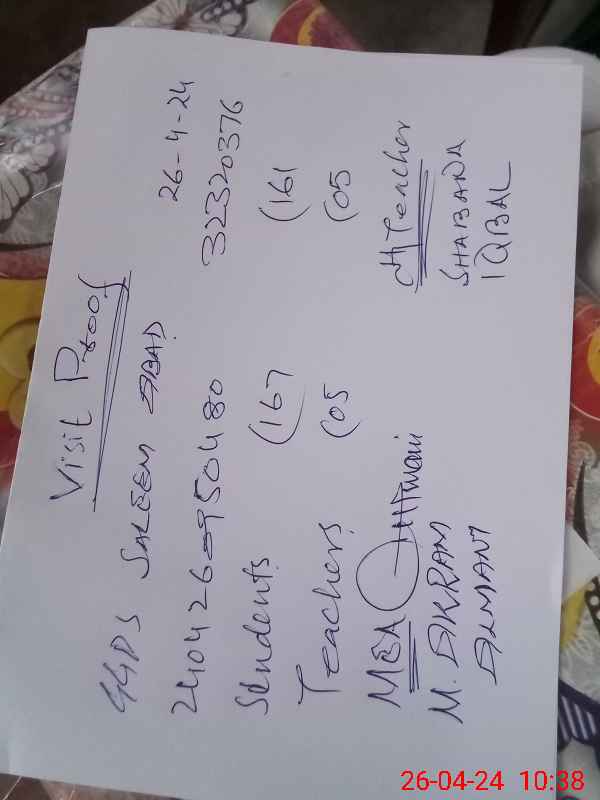 Visit Proof
GGPS SALEEM ABAD 26-4-24
240426-950480 32320376
Students (167 (161
Teachers (05 (05
MEA H/Teacher
M. AKRAM SHABANA
IQBAL
26-04-24 10:38